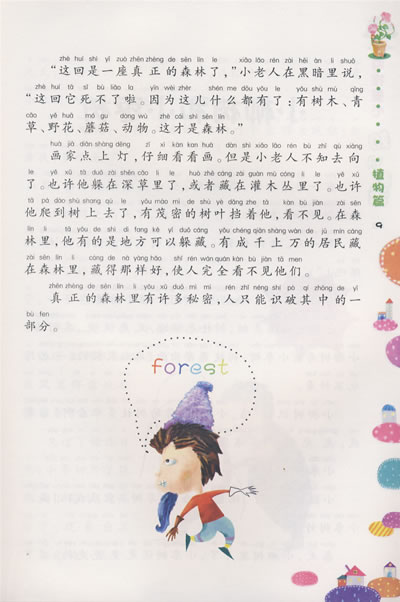 zhè huí shì yī zuò zhēn zhèng de sēn lín le xiǎo lǎo rén zài hēi àn lǐ shuō
“这回是一座真正的森林了，”小老人在黑暗里说，
zhè huí tā sǐ bù liǎo la yīn wèi zhèr shén me dōu yǒu le yǒu shù mù qīng
“这回它死不了啦。因为这儿什么都有了：有树木、青
cǎo yě huā mó gu dòng wù zhè cái shì sēn lín
草、野花、蘑菇、动物。这才是森林。”
huà jiā diǎn shàng dēng zǐ xì kàn kan huà dàn shì xiǎo lǎo rén bù zhī qù xiàng
画家点上灯，仔细看看画。但是小老人不知去向
le yě xǔ tā duǒ zài shēn cǎo lǐ le huò zhě cáng zài guàn mù cóng lǐ le yě xǔ
了。也许他躲在深草里了，或者藏在灌木丛里了。也许
tā pá dào shù shang qù le yǒu mào mì de shù yè dǎng zhe tā kàn bù jiàn zài sēn
他爬到树上去了，有茂密的树叶挡着他，看不见。在森
lín lǐ tā yǒu de shì dì fang kě yǐ duǒ cáng yǒu chéng qiān shàng wàn de jū mín cáng
林里，他有的是地方可以躲藏。有成千上万的居民藏
zài sēn lín lǐ cáng de nà yàng hǎo shǐ rén wán quán kàn bù jiàn tā men
在森林里，藏得那样好，使人完全看不见他们。
zhēn zhèng de sēn lín lǐ yǒu xǔ duō mì mì rén zhǐ néng shí pò qí zhōng de yī
真正的森林里有许多秘密，人只能识破其中的一
bù fen
部分。
forest
植物篇
9